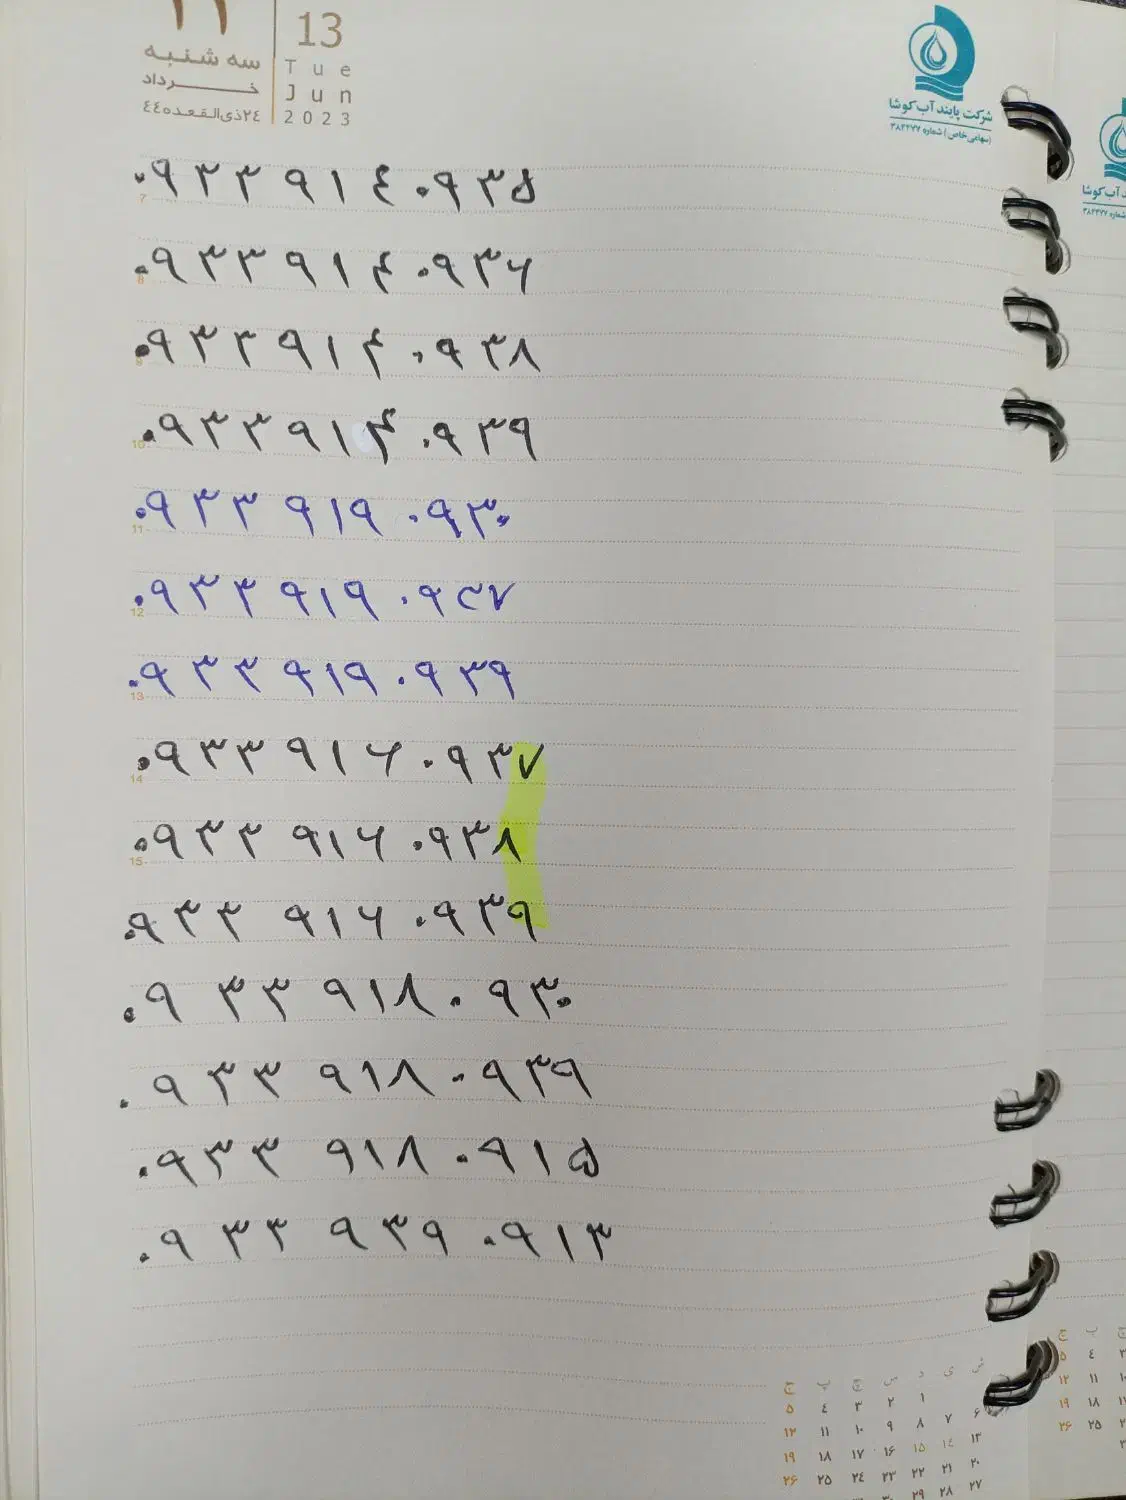 13
سه شنبه
Tue
خرداد
Jun
٢٤ذی‌القعده٤٤
2023
شرکت پایند آب کوشا
(سهامی خاص) شماره ۳۸۲۲۷۷
۰۹۳۳ ۹۱٤ ۰۹۳۵
7
۰۹۳۳ ۹۱۴ ۰۹۳۶
8
۰۹۳۳ ۹۱۴ ۰۹۳۸
9
۰۹۳۳ ۹۱۴ ۰۹۳۹
10
۰۹۳۳ ۹۱۹ ۰۹۳۰
11
۰۹۳۳ ۹۱۹ ۰۹۳۷
12
۰۹۳۳ ۹۱۹ ۰۹۳۹
13
۰۹۳۳ ۹۱۶ ۰۹۳۷
14
۰۹۳۳ ۹۱۶ ۰۹۳۸
15
۰۹۳۳ ۹۱۶ ۰۹۳۹
۰۹۳۳ ۹۱۸ ۰۹۳۰
۰۹۳۳ ۹۱۸ ۰۹۳۹
۰۹۳۳ ۹۱۸ ۰۹۱۵
۰۹۳۳ ۹۳۹ ۰۹۱۳
ش ی د س چ پ ج
۱ ۲ ۳ ٤ ۵
۶ ۷ ۸ ۹ ۱۰ ۱۱ ۱۲
۱۳ ۱٤ ۱۵ ۱۶ ۱۷ ۱۸ ۱۹
۲۰ ۲۱ ۲۲ ۲۳ ۲٤ ۲۵ ۲۶
۲۷ ۲۸ ۲۹ ۳۰